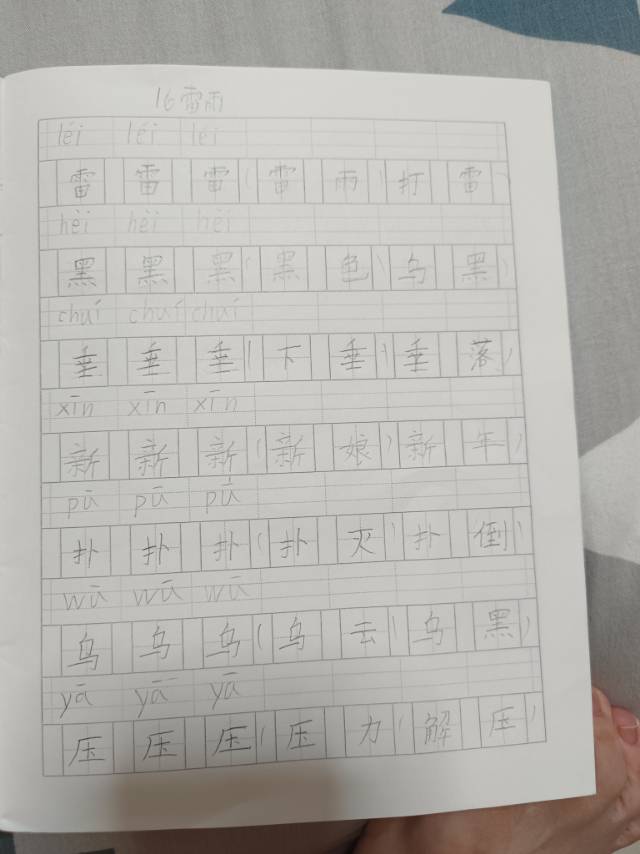 16雷雨
léi léi léi
雷 雷 雷(雷雨)打雷)
hēi hēi hēi
黑 黑 黑(黑色)乌黑)
chuí chuí chuí
垂 垂 垂(下垂)垂落)
xīn xīn xīn
新 新 新(新娘)新年)
pū pū pū
扑 扑 扑(扑灭)扑倒)
wū wū wū
乌 乌 乌(乌云)乌黑)
yā yā yā
压 压 压(压力)解压)